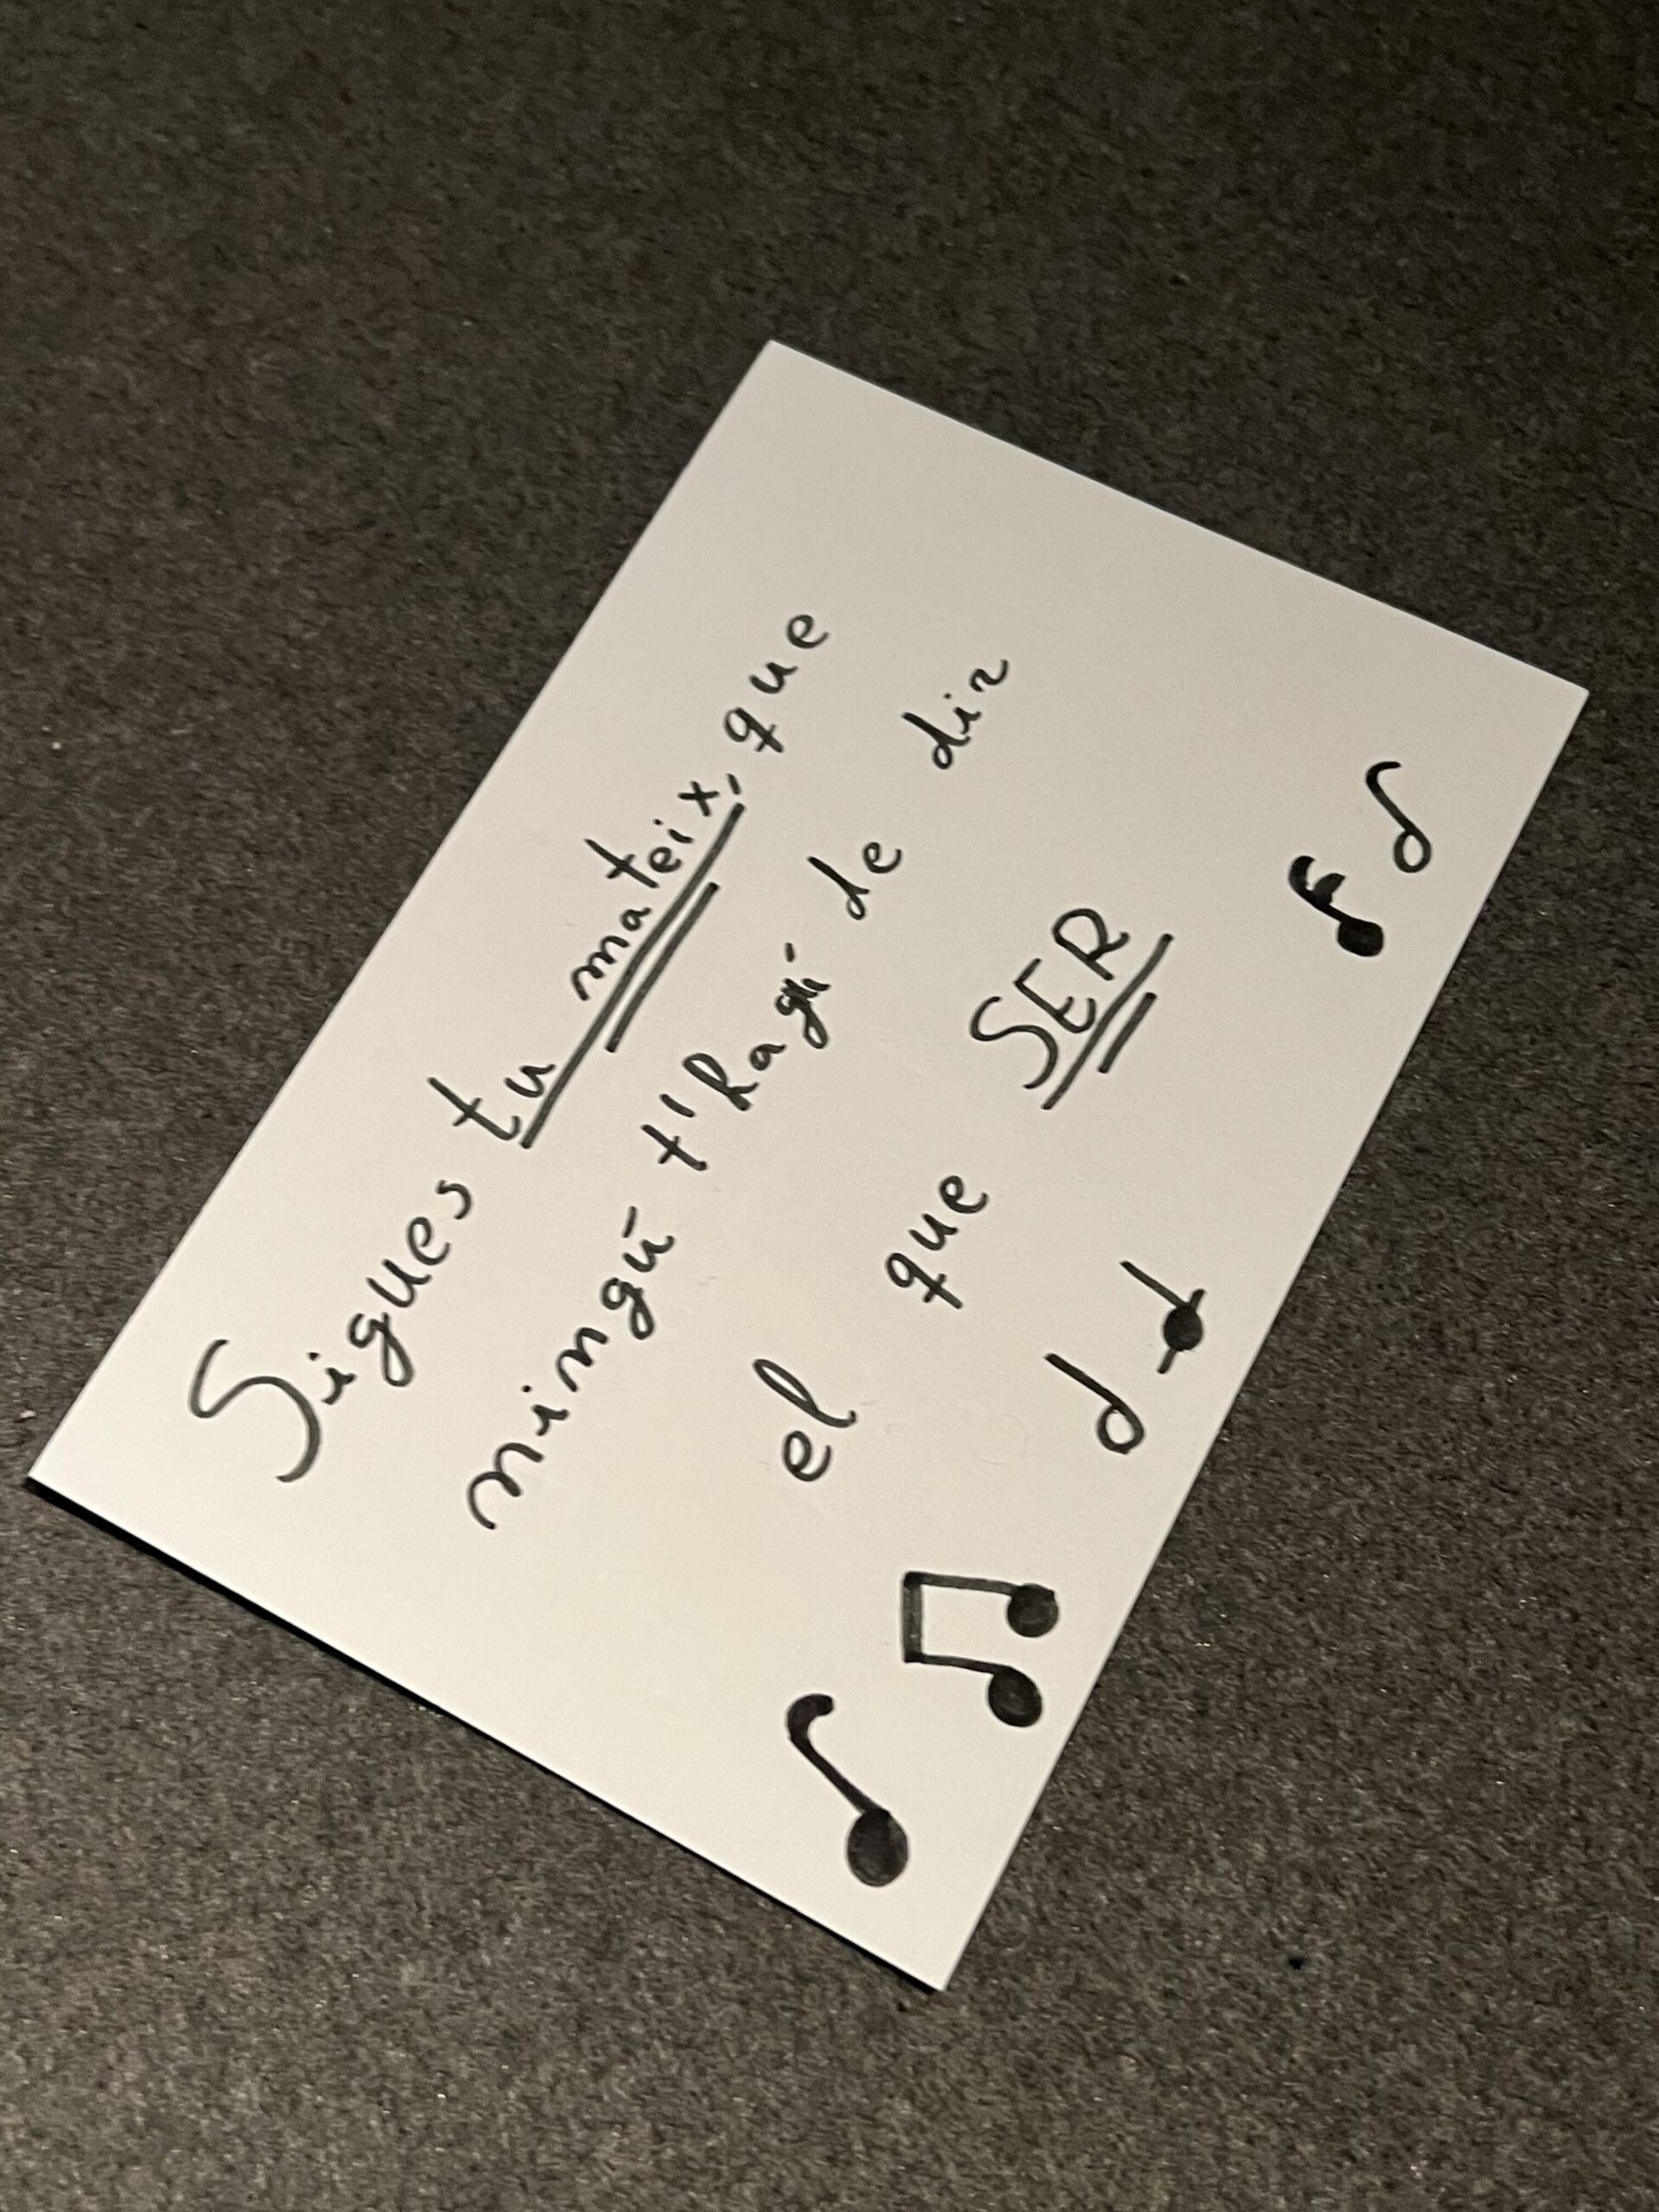 Sigues tu mateix, que
ningú t'hagi de dir
el que SER